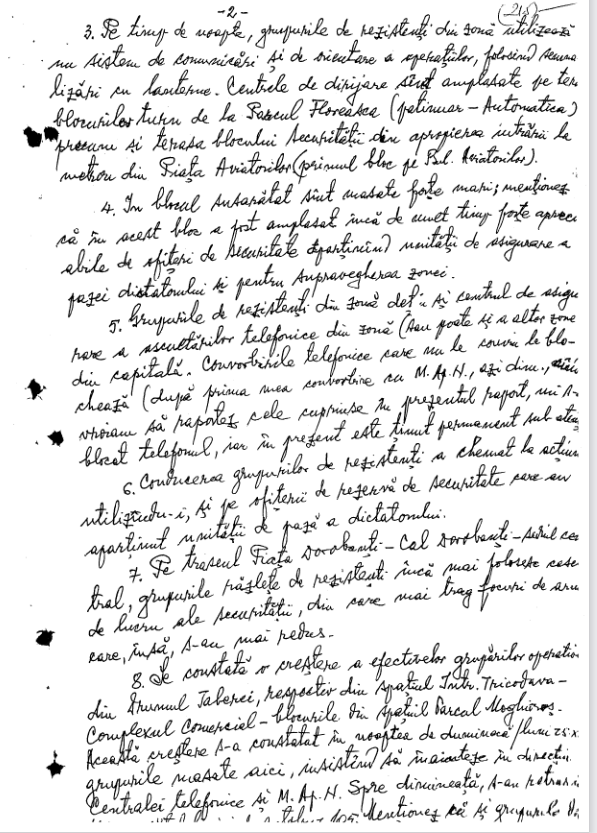 -2-
(215)
3. Pe timp de noapte, grupurile de rezistenți din zonă utilizează
un sistem de comunicări și de orientare a operațiilor, folosind semna
lizări cu lanterne. Centrele de dirijare sînt amplasate pe ter
blocurilor turn de la Parcul Floreasca (patinuar - Automatica)
precum și terasa blocului Securității din apropierea intrării la
metrou din Piața Aviatorilor (primul bloc pe Bul. Aviatorilor).
4. În blocul susarătat sînt masate forțe mari; menționez
că în acest bloc a fost amplasat încă de timp forțe apreci
abile de ofițeri de securitate aparținînd unității de asigurare a
pazei dictatorului și pentru supravegherea zonei.
5. Grupurile de rezistenți din zonă dețin și centrul de asigu
rare a ascultărilor telefonice din zonă (sau poate și a altor zone
din capitală. Convorbirile telefonice care nu le convin le blo-
chează (după prima mea convorbire cu M.Ap.N., azi dim.,
vroiam să raportez cele cuprinse în prezentul raport, mi s-a
blocat telefonul, iar în prezent este ținut permanent sub
6. Conducerea grupurilor de rezistenți a chemat la acțiun
utilizîndu-i, și pe ofițerii de rezervă de securitate care au
aparținut unității de pază a dictatorului.
7. Pe traseul Piața Dorobanți - Cal Dorobanți - sediul cen
tral, grupurile răzlețe de rezistenți încă mai folosesc case
de lucru ale securității, din care mai trag focuri de arm
care, însă, s-au mai redus.
8. Se constată o creștere a efectivelor grupărilor operativ
din Drumul Taberei, respectiv din spațiul Intr. Tricodava -
Complexul Comercial - blocurile din spațiul Parcul Moghioroș.
Această creștere s-a constatat în noaptea de duminică/luni 25.X
grupurile masate aici, insistînd să înainteze în direcția
Centralei telefonice și M.Ap.N. Spre dimineață, s-au retras
Menționez că și grupurile